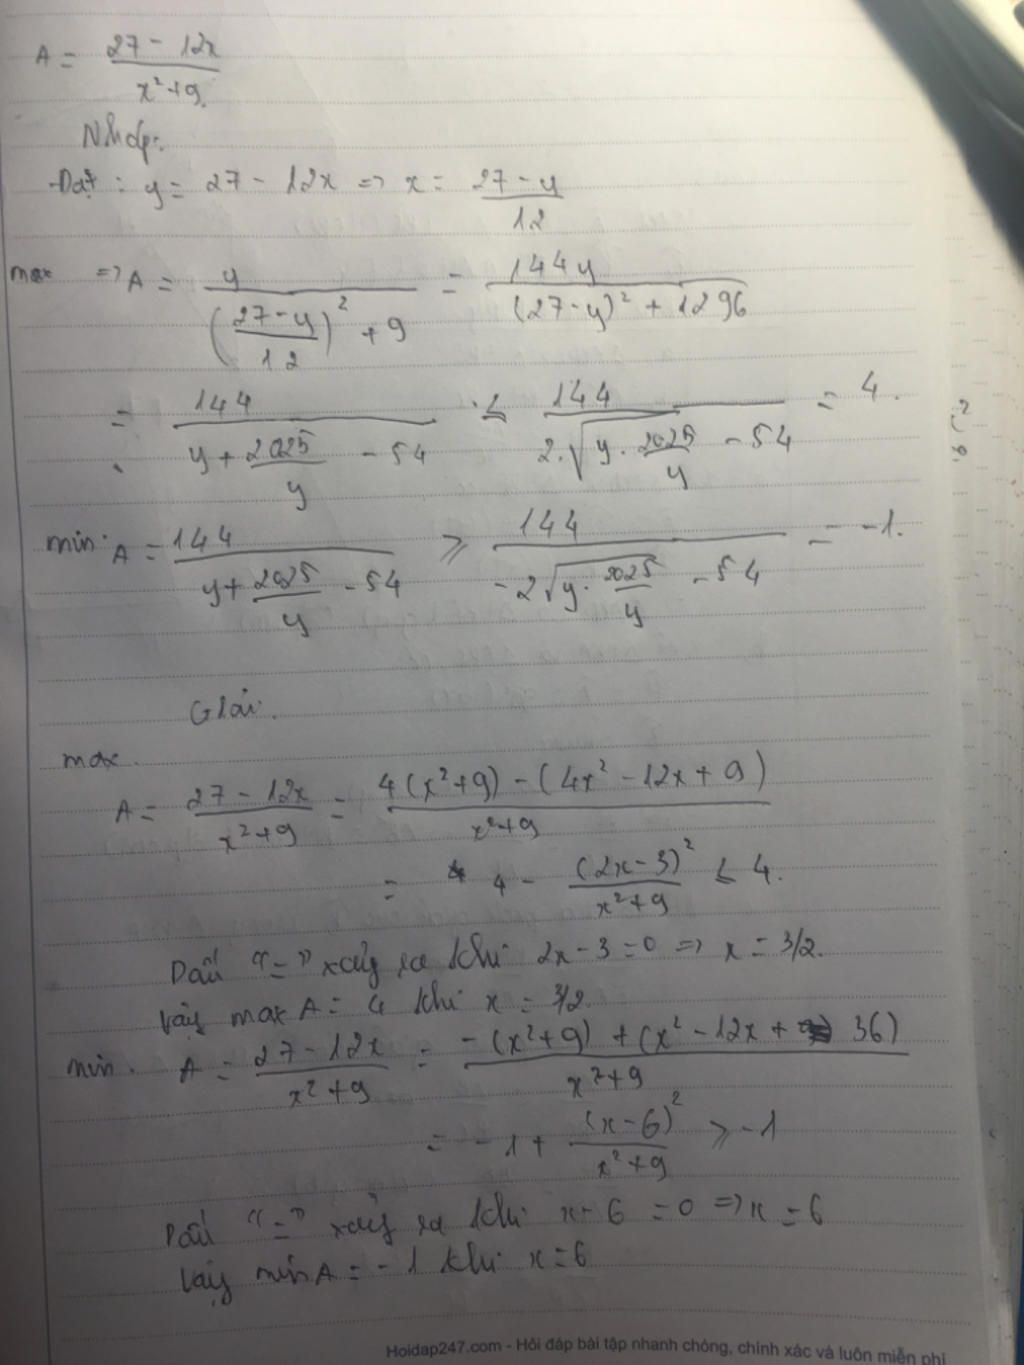 A = (27 - 12x)/(x² + 9)
Nháp:
Đặt : y = 27 - 12x => x = (27 - y)/12
max => A = y/(((27 - y)/12)² + 9) = 144y/((27 - y)² + 1296)
= 144/(y + 2025/y - 54) ≤ 144/(2.√(y . 2025/y) - 54) = 4.
min: A = 144/(y + 2025/y - 54) ≥ 144/(-2√(y . 2025/y) - 54) = -1.
Giải.
max.
A = (27 - 12x)/(x² + 9) = (4(x² + 9) - (4x² - 12x + 9))/(x² + 9)
= 4 - (2x - 3)²/(x² + 9) ≤ 4.
Dấu "=" xảy ra khi 2x - 3 = 0 => x = 3/2.
Vậy max A = 4 khi x = 3/2.
min. A = (27 - 12x)/(x² + 9) = (-(x² + 9) + (x² - 12x + 36))/(x² + 9)
= -1 + (x - 6)²/(x² + 9) ≥ -1
Dấu "=" xảy ra khi x - 6 = 0 => x = 6
Vậy min A = -1 khi x = 6
Hoidap247.com - Hỏi đáp bài tập nhanh chóng, chính xác và luôn miễn phí